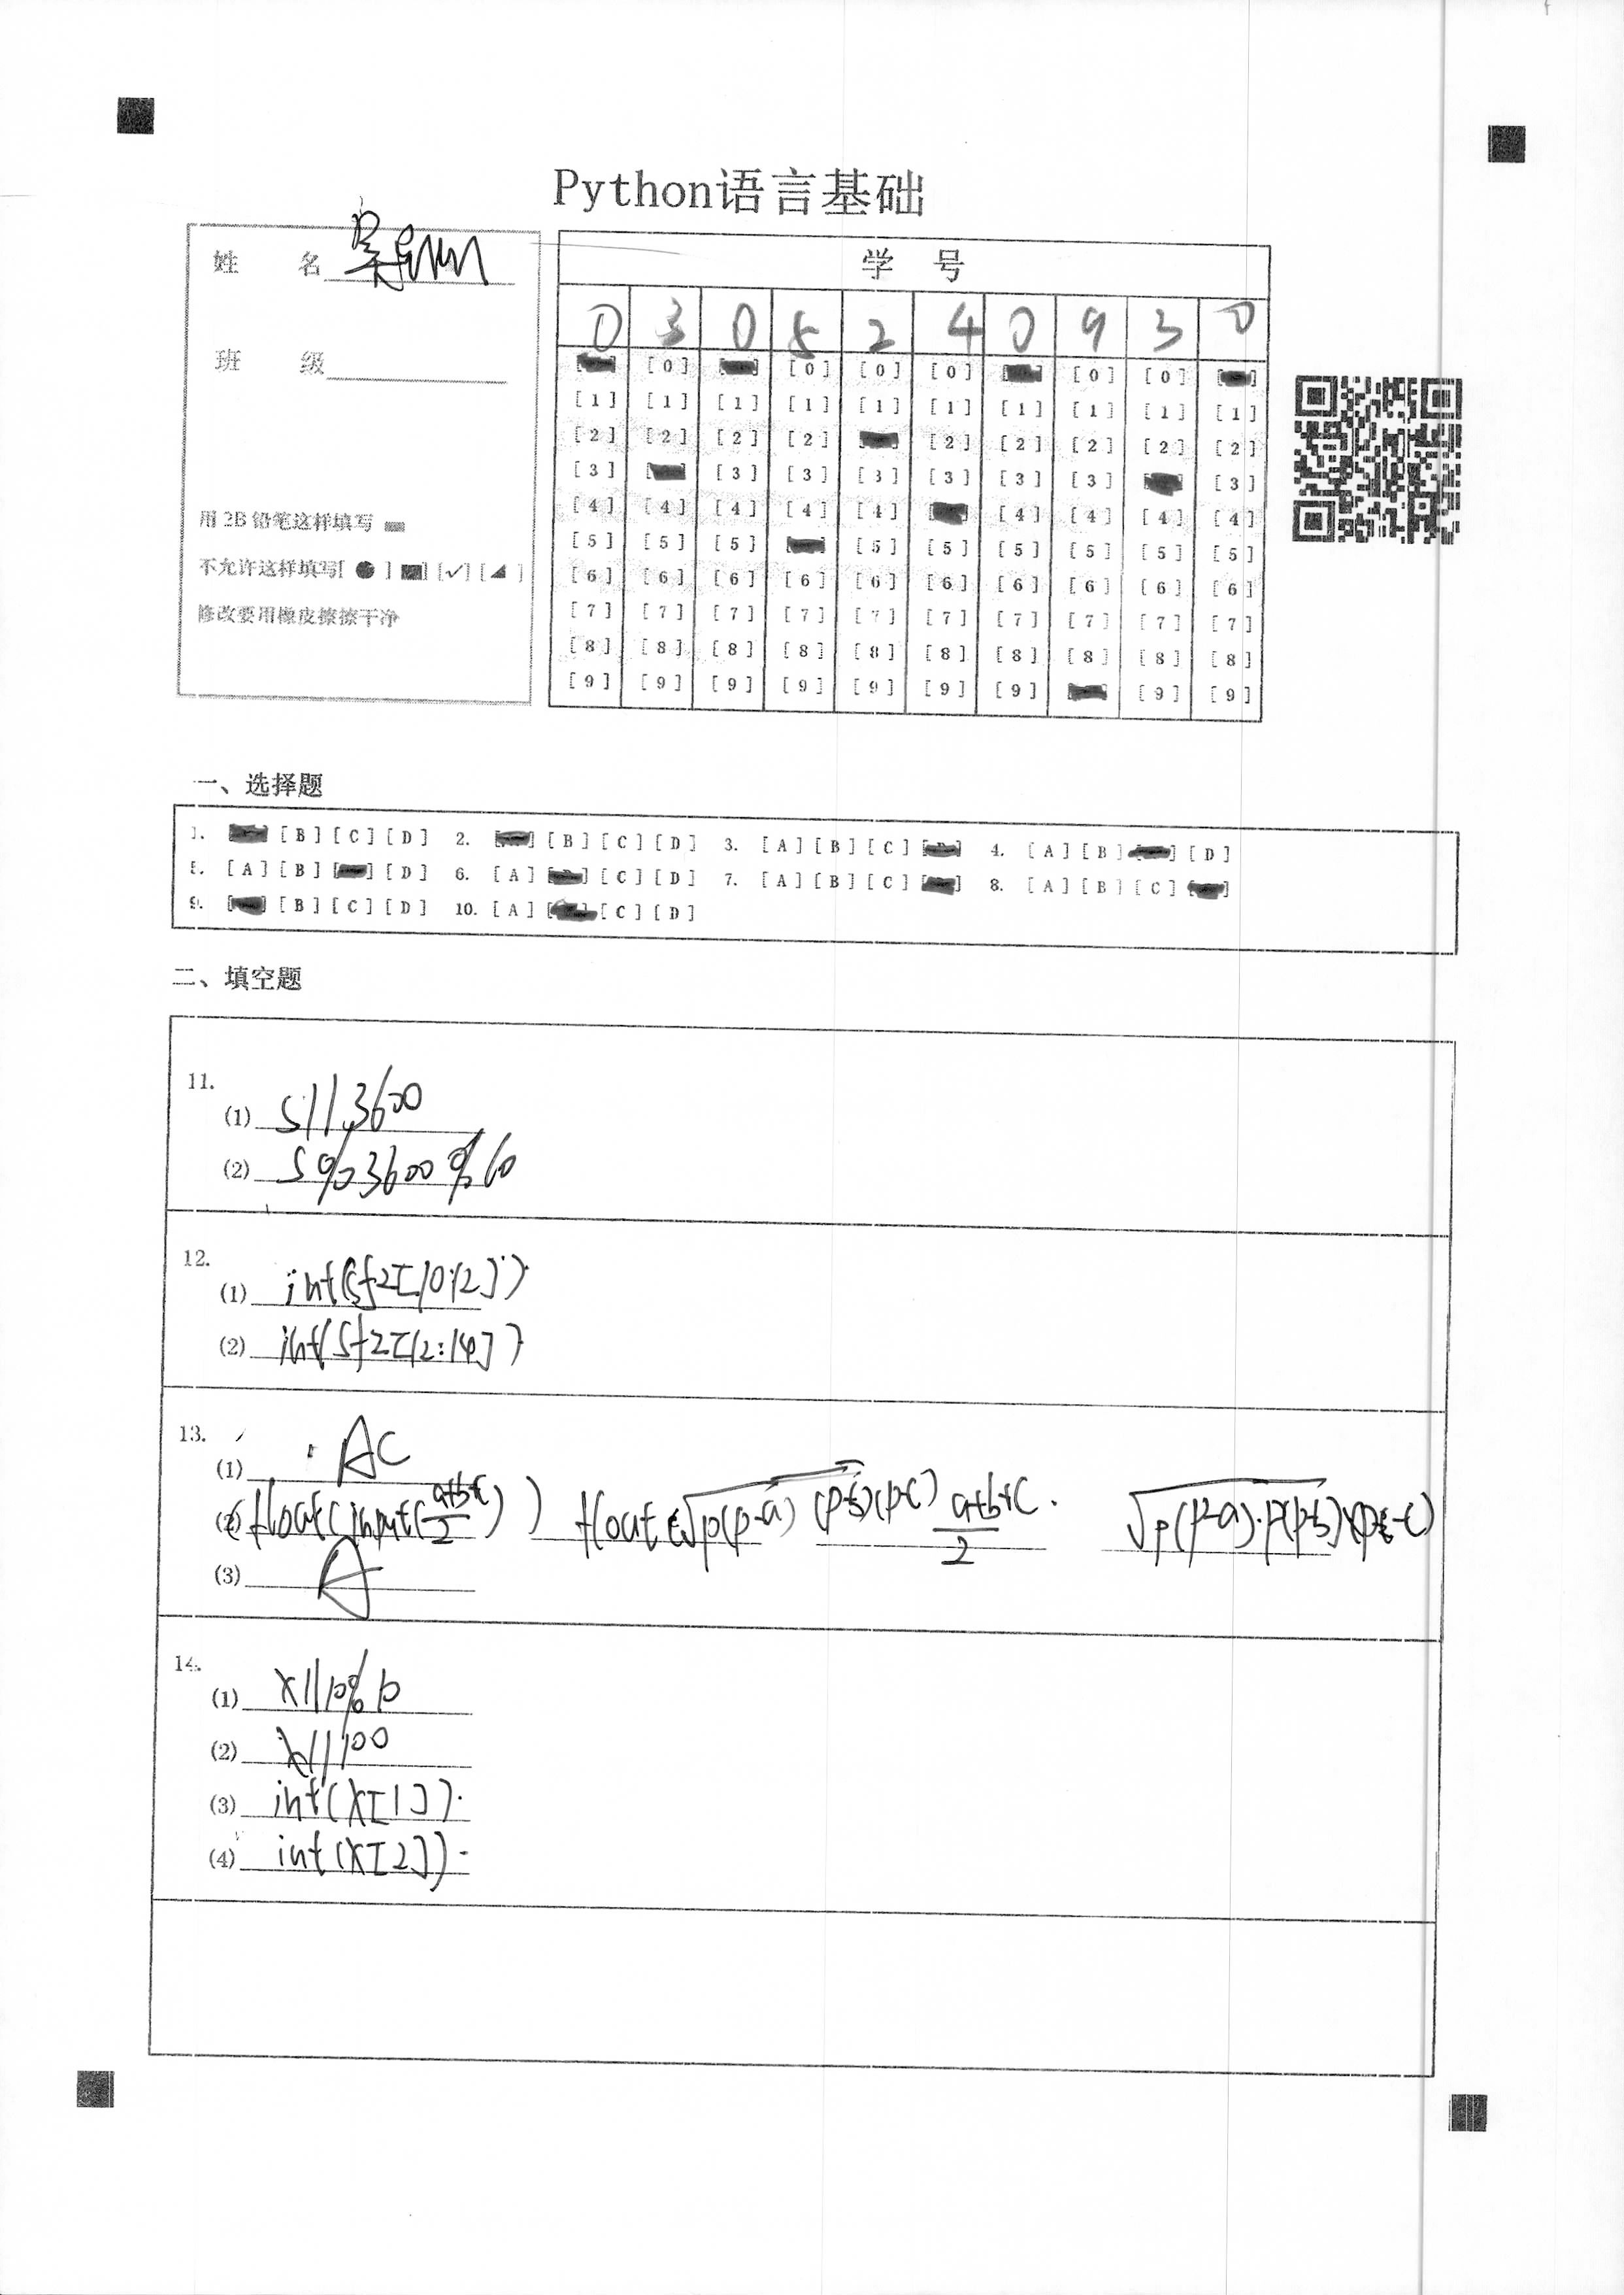 Python语言基础
姓 名
班 级
用 2B 铅笔这样填写
不允许这样填写[ ● ] [✓] [ ◢ ]
修改要用橡皮擦擦干净
学 号
0 3 0 5 2 4 0 9 3 0
[0] [0] [0] [0] [0] [0]
[1] [1] [1] [1] [1] [1] [1] [1] [1] [1]
[2] [2] [2] [2] [2] [2] [2] [2] [2]
[3] [3] [3] [3] [3] [3] [3] [3]
[4] [4] [4] [4] [4] [4] [4] [4] [4]
[5] [5] [5] [5] [5] [5] [5] [5] [5]
[6] [6] [6] [6] [6] [6] [6] [6] [6] [6]
[7] [7] [7] [7] [7] [7] [7] [7] [7] [7]
[8] [8] [8] [8] [8] [8] [8] [8] [8] [8]
[9] [9] [9] [9] [9] [9] [9] [9] [9]
一、选择题
1. [B] [C] [D] 2. [B] [C] [D] 3. [A] [B] [C] 4. [A] [B] [D]
5. [A] [B] [D] 6. [A] [C] [D] 7. [A] [B] [C] 8. [A] [B] [C]
9. [B] [C] [D] 10. [A] [C] [D]
二、填空题
11.
(1) s//3600
(2) s%3600%60
12.
(1) int(sfz[10:12])
(2) int(sfz[12:14])
13.
(1) AC
(2) float(input(a+b+c/2)) float(√p(p-a)(p-b)(p-c) a+b+c/2 √p(p-a)·p(p-b)
(3) A
14.
(1) x//10%10
(2) x//100
(3) int(x[1])
(4) int(x[2])